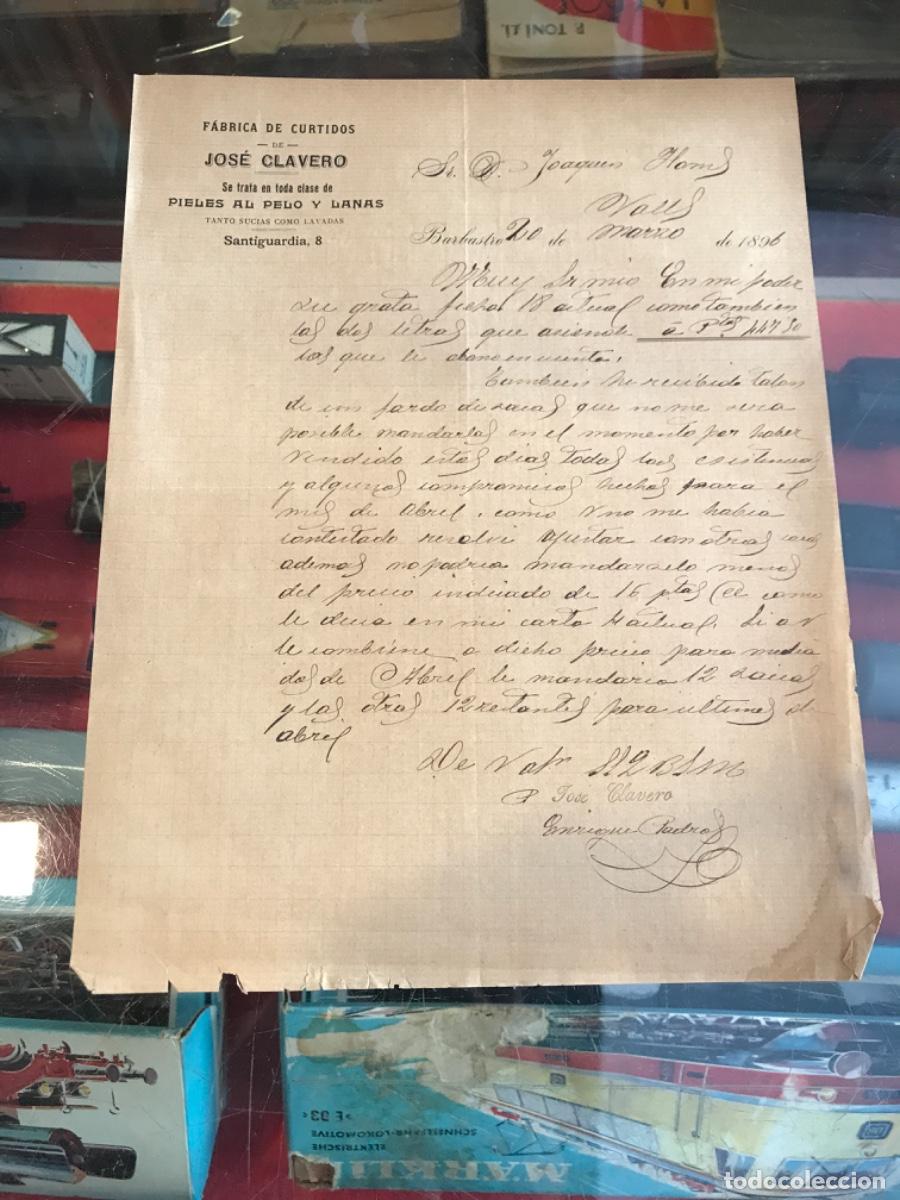 P. TONI
FÁBRICA DE CURTIDOS
— DE —
JOSÉ CLAVERO
Se trata en toda clase de
PIELES AL PELO Y LANAS
TANTO SUCIAS COMO LAVADAS
Santiguardia, 8
Sr. D. Joaquin Homs
Valls
Barbastro 20 de Marzo de 1896
Muy Sr mio En mi poder
su grata fecha 18 actual como tambien
las dos letras que asiende á Ptas 447 50
las que le abono en cuenta.
Tambien he recibido talon
de un fardo de sacas que no me sera
posible mandarlas en el momento por haber
vendido estos dias todas las existencias
y algunos compromisos hechos para el
mes de Abril, como V no me habia
contestado resolvi ajustar con otras casas
ademas no podria mandarselo menos
del precio indicado de 16 ptas como
le decia en mi carta 4 actual. Si a V
le combiene a dicho precio para media
dos de Abril le mandaria 12 sacas
y las otras 12 restantes para ultimos de
abril
De V atº SS Q B S M
P José Clavero
Enrique Padros
»E 03«
ELEKTRISCHE
SCHNELLZUG-LOKOMOTIVE
MÄRKLIN
todocoleccion